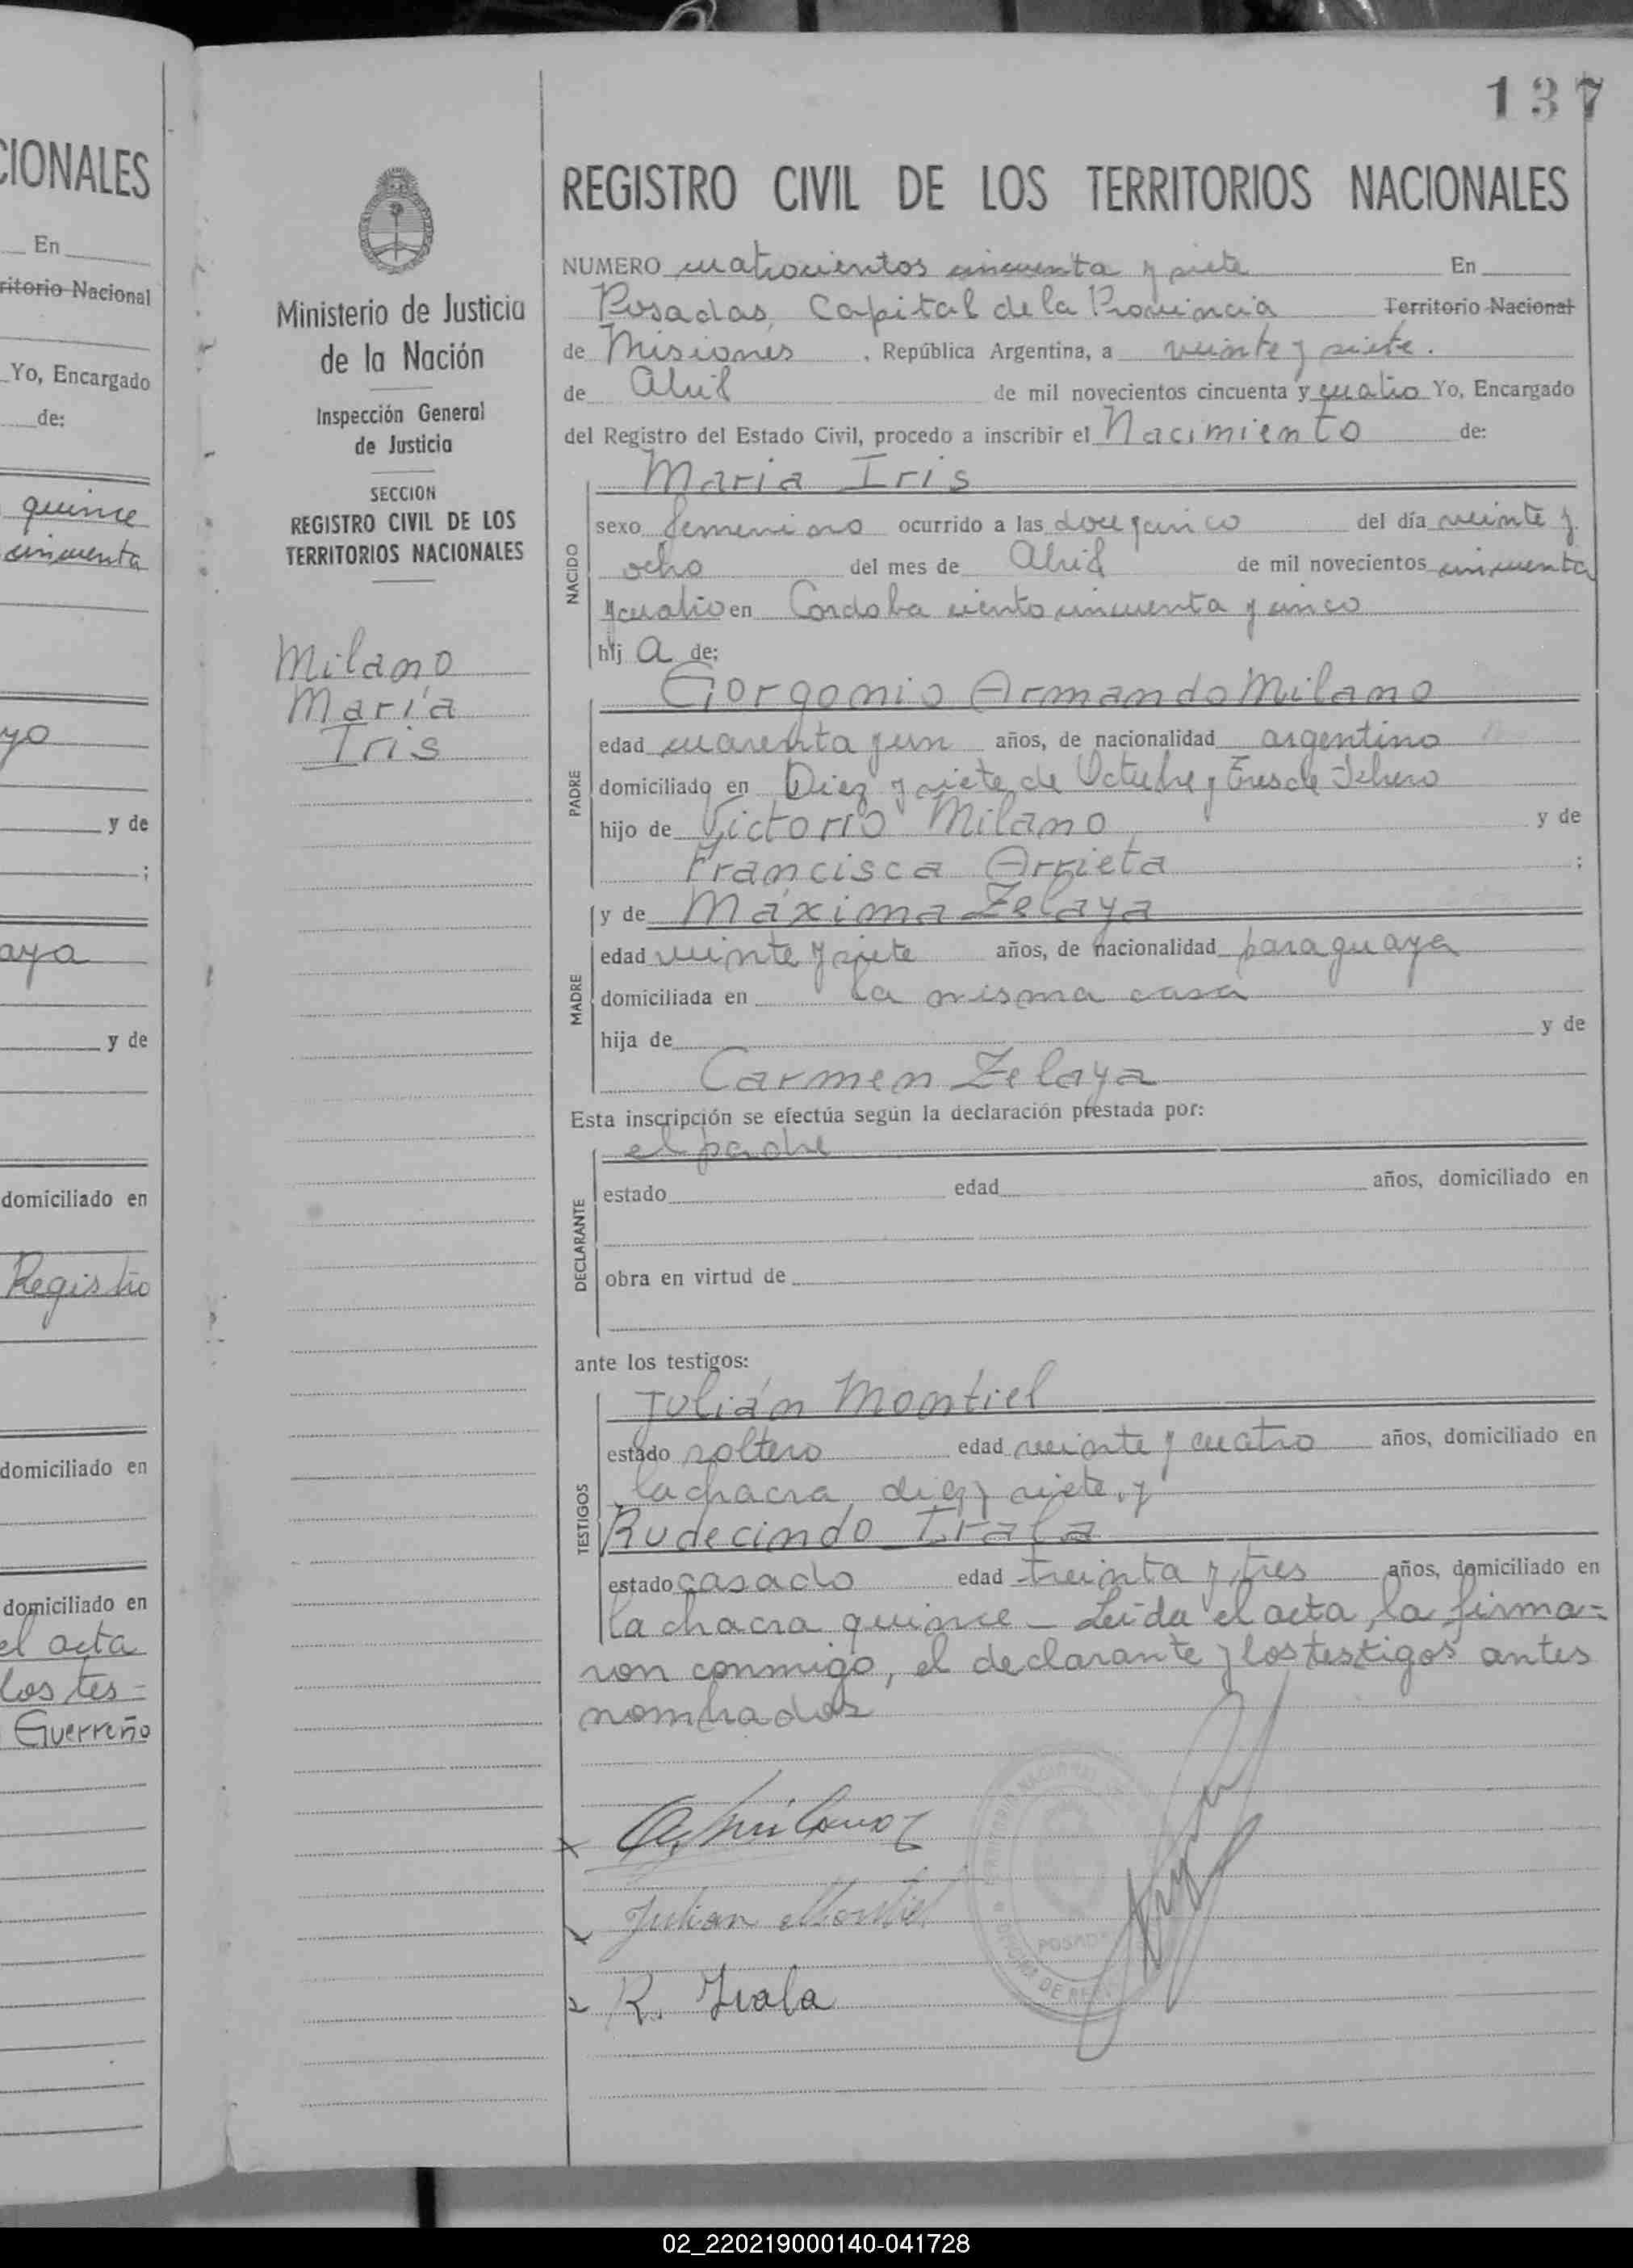 CIONALES
En
ritorio Nacional
Yo, Encargado
de:
quince
cincuenta
yo
y de
;
aya
y de
domiciliado en
Registro
domiciliado en
domiciliado en
el acta
los tes=
Guerreño
Ministerio de Justicia
de la Nación
Inspección General
de Justicia
SECCION
REGISTRO CIVIL DE LOS
TERRITORIOS NACIONALES
Milano
María
Iris
137
REGISTRO CIVIL DE LOS TERRITORIOS NACIONALES
NUMERO cuatrocientos cincuenta y siete En
Posadas, Capital de la Provincia Territorio Nacional
de Misiones , República Argentina, a veinte y siete.
de Abril de mil novecientos cincuenta y cuatro Yo, Encargado
del Registro del Estado Civil, procedo a inscribir el Nacimiento de:
Maria Iris
NACIDO
sexo femenino ocurrido a las doce y cinco del día veinte y
ocho del mes de Abril de mil novecientos cincuenta
y cuatro en Cordoba ciento cincuenta y cinco
hij a de:
Gorgonio Armando Milano
PADRE
edad cuarenta y un años, de nacionalidad argentino
domiciliado en Diez y siete de Octubre y Tres de Febrero
hijo de Victorio Milano y de
Francisca Arrieta ;
y de Máxima Zelaya
MADRE
edad veinte y siete años, de nacionalidad paraguaya
domiciliada en la misma casa
hija de y de
Carmen Zelaya
Esta inscripción se efectúa según la declaración prestada por:
el padre
DECLARANTE
estado edad años, domiciliado en
obra en virtud de
ante los testigos:
Julián Montiel
TESTIGOS
estado soltero edad veinte y cuatro años, domiciliado en
la chacra diez y siete, y
Rudecindo Irala
estado casado edad treinta y tres años, domiciliado en
la chacra quince - Leida el acta, la firma=
ron conmigo, el declarante y los testigos antes
nombrados
Julian Montiel
POSADAS
R. Irala
02_220219000140-041728